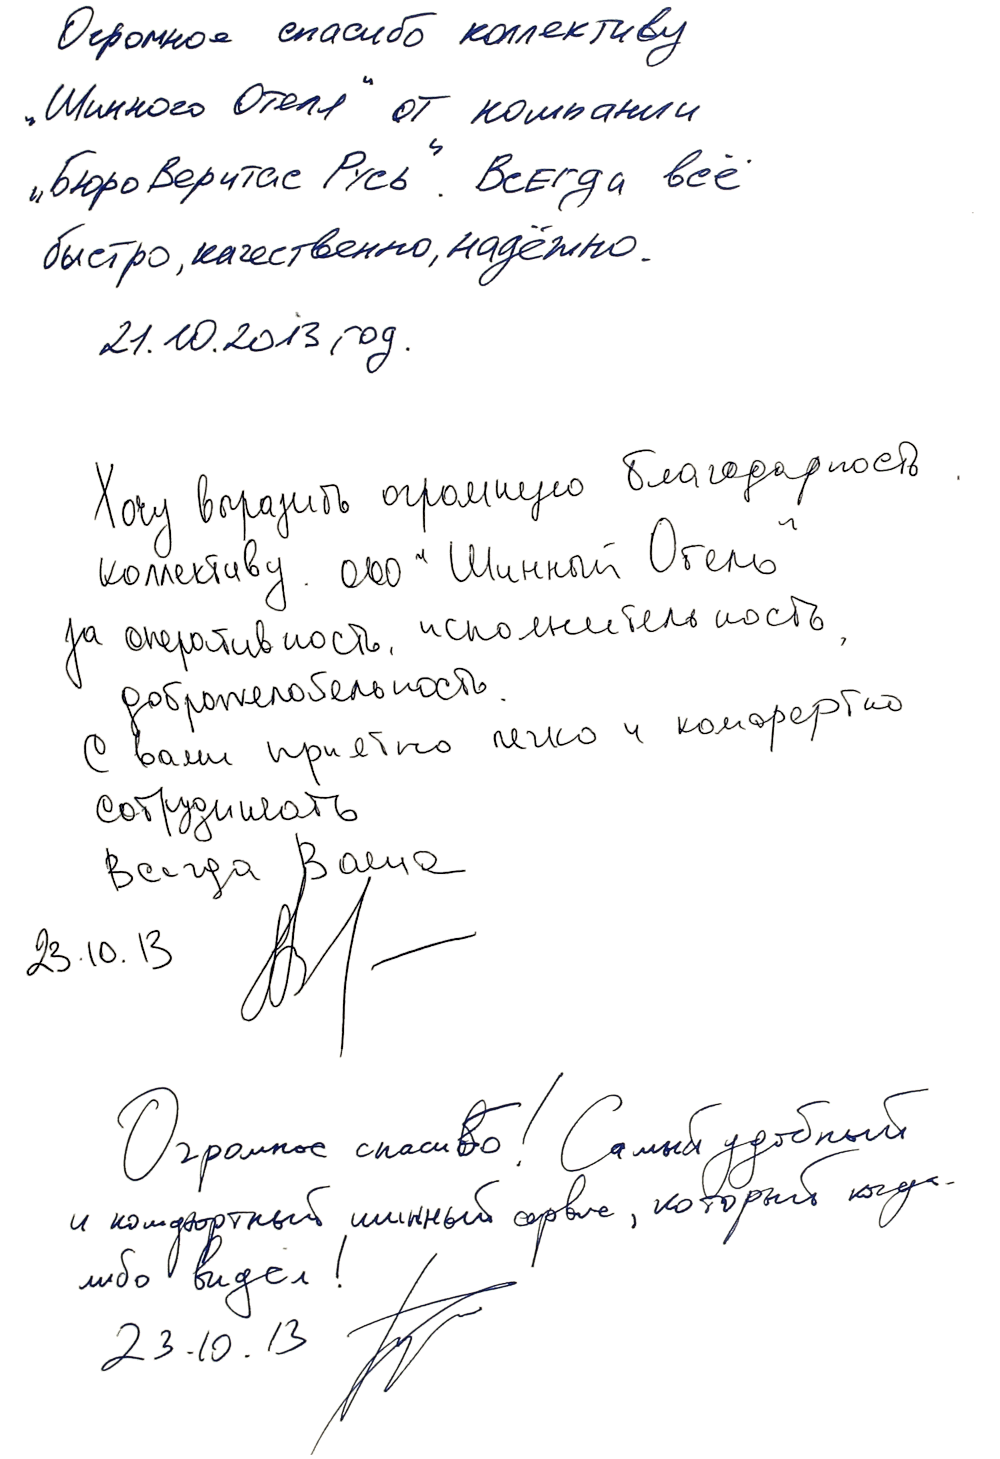 Огромное спасибо коллективу
„Шинного Отеля“ от компании
„Бюро Веритас Русь“. Всегда всё
быстро, качественно, надёжно.
21.10.2013 год.
Хочу выразить огромную благодарность
коллективу ООО "Шинный Отель"
за оперативность, исполнительность,
доброжелательность.
С вами приятно легко и комфортно
сотрудничать
Всегда Ваша
23.10.13
Огромное спасибо! Самый удобный
и комфортный шинный сервис, который когда-
либо видел!
23.10.13